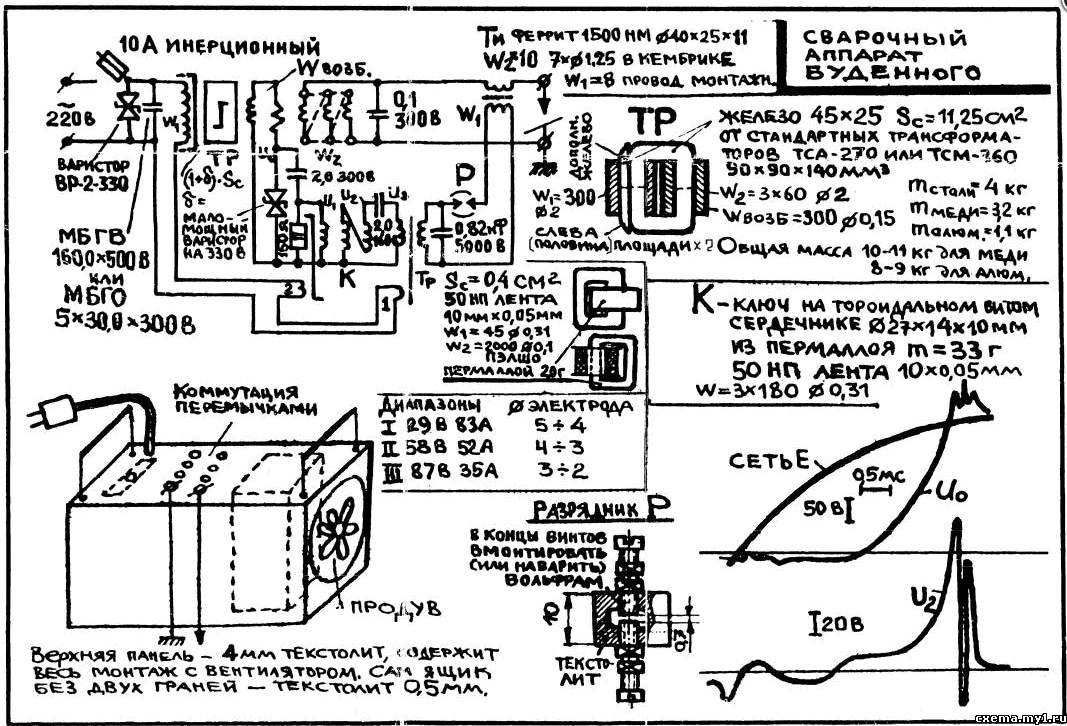 СВАРОЧНЫЙ
АППАРАТ
БУДЕННОГО
10А ИНЕРЦИОННЫЙ
W ВОЗБ.
~
220В
ВАРИСТОР
ВР-2-330
W₁
ТР
(1+δ)·Sc
δ=
МАЛО-
МОЩНЫЙ
ВАРИСТОР
НА 330В
МБГВ
160,0×500В
ИЛИ
МБГО
5×30,0×300В
W₂
0,1
300В
2,0 300В
U₁
U₂
U₃
2,0
К
2
1
W₁
Р
0,82мкф
5000В
Тр
Sc=0,4 СМ2
50НП ЛЕНТА
10мм×0,05мм
W₁=45 Ø0,31
W₂=2000 Ø0,1
ПЭЛШО
ПЕРМАЛЛОЙ 20г
ТИ ФЕРРИТ 1500 НМ Ø40×25×11
W₂=10 7ר1,25 В КЕМБРИКЕ
W₁=8 ПРОВОД МОНТАЖН.
ТР
ДОПОЛН.
ЖЕЛЕЗО
ЖЕЛЕЗО 45×25 Sc=11,25 см²
ОТ СТАНДАРТНЫХ ТРАНСФОРМА-
ТОРОВ ТСА-270 ИЛИ ТСМ-360
90×90×140мм³
W₁=300
Ø2
W₂=3×60 Ø2
W ВОЗБ=300 Ø0,15
СЛЕВА
(ПОЛОВИНА) ПЛОЩАДИ×2
m СТАЛИ=4 кг
m МЕДИ=3,2 кг
m АЛЮМ.=1,1 кг
ОБЩАЯ МАССА 10-11 КГ ДЛЯ МЕДИ
8-9 КГ ДЛЯ АЛЮМ.
К - КЛЮЧ НА ТОРОИДАЛЬНОМ ВИТОМ
СЕРДЕЧНИКЕ Ø27×14×10мм
ИЗ ПЕРМАЛЛОЯ m=33 г
50 НП ЛЕНТА 10×0,05мм
W=3×180 Ø0,31
ДИАПАЗОНЫ Ø ЭЛЕКТРОДА
I 29В 83А 5÷4
II 58В 52А 4÷3
III 87В 35А 3÷2
КОММУТАЦИЯ
ПЕРЕМЫЧКАМИ
ПРОДУВ
ВЕРХНЯЯ ПАНЕЛЬ - 4мм ТЕКСТОЛИТ, СОДЕРЖИТ
ВЕСЬ МОНТАЖ С ВЕНТИЛЯТОРОМ. САМ ЯЩИК
БЕЗ ДВУХ ГРАНЕЙ - ТЕКСТОЛИТ 0,5мм.
РАЗРЯДНИК Р
В КОНЦЫ ВИНТОВ
ВМОНТИРОВАТЬ
(ИЛИ НАВАРИТЬ)
ВОЛЬФРАМ
10
0,7
ТЕКСТО-
ЛИТ
СЕТЬ Е
0,5мс
50В
U₀
U₂
20В
cxema.my1.ru